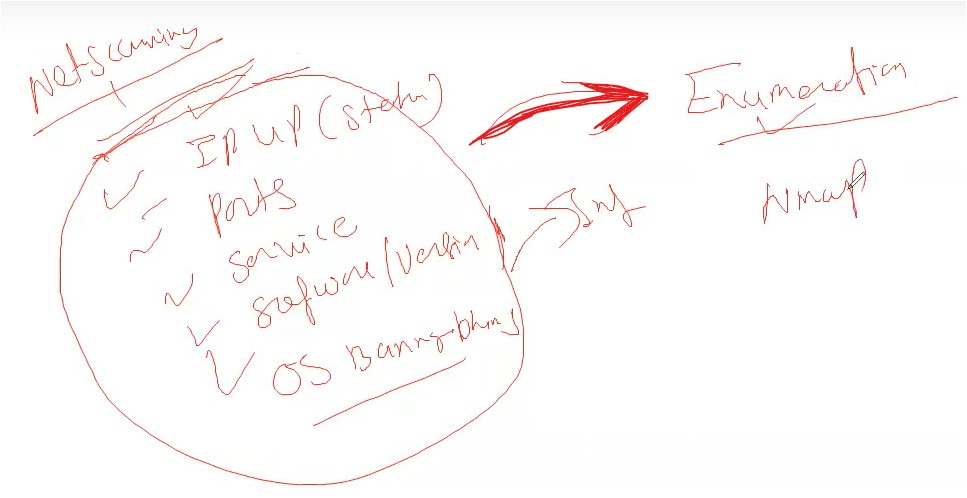 Net Scanning
IP UP (Status)
Ports
Service
Software/Version
OS
Inf
Enumeration
Nmap